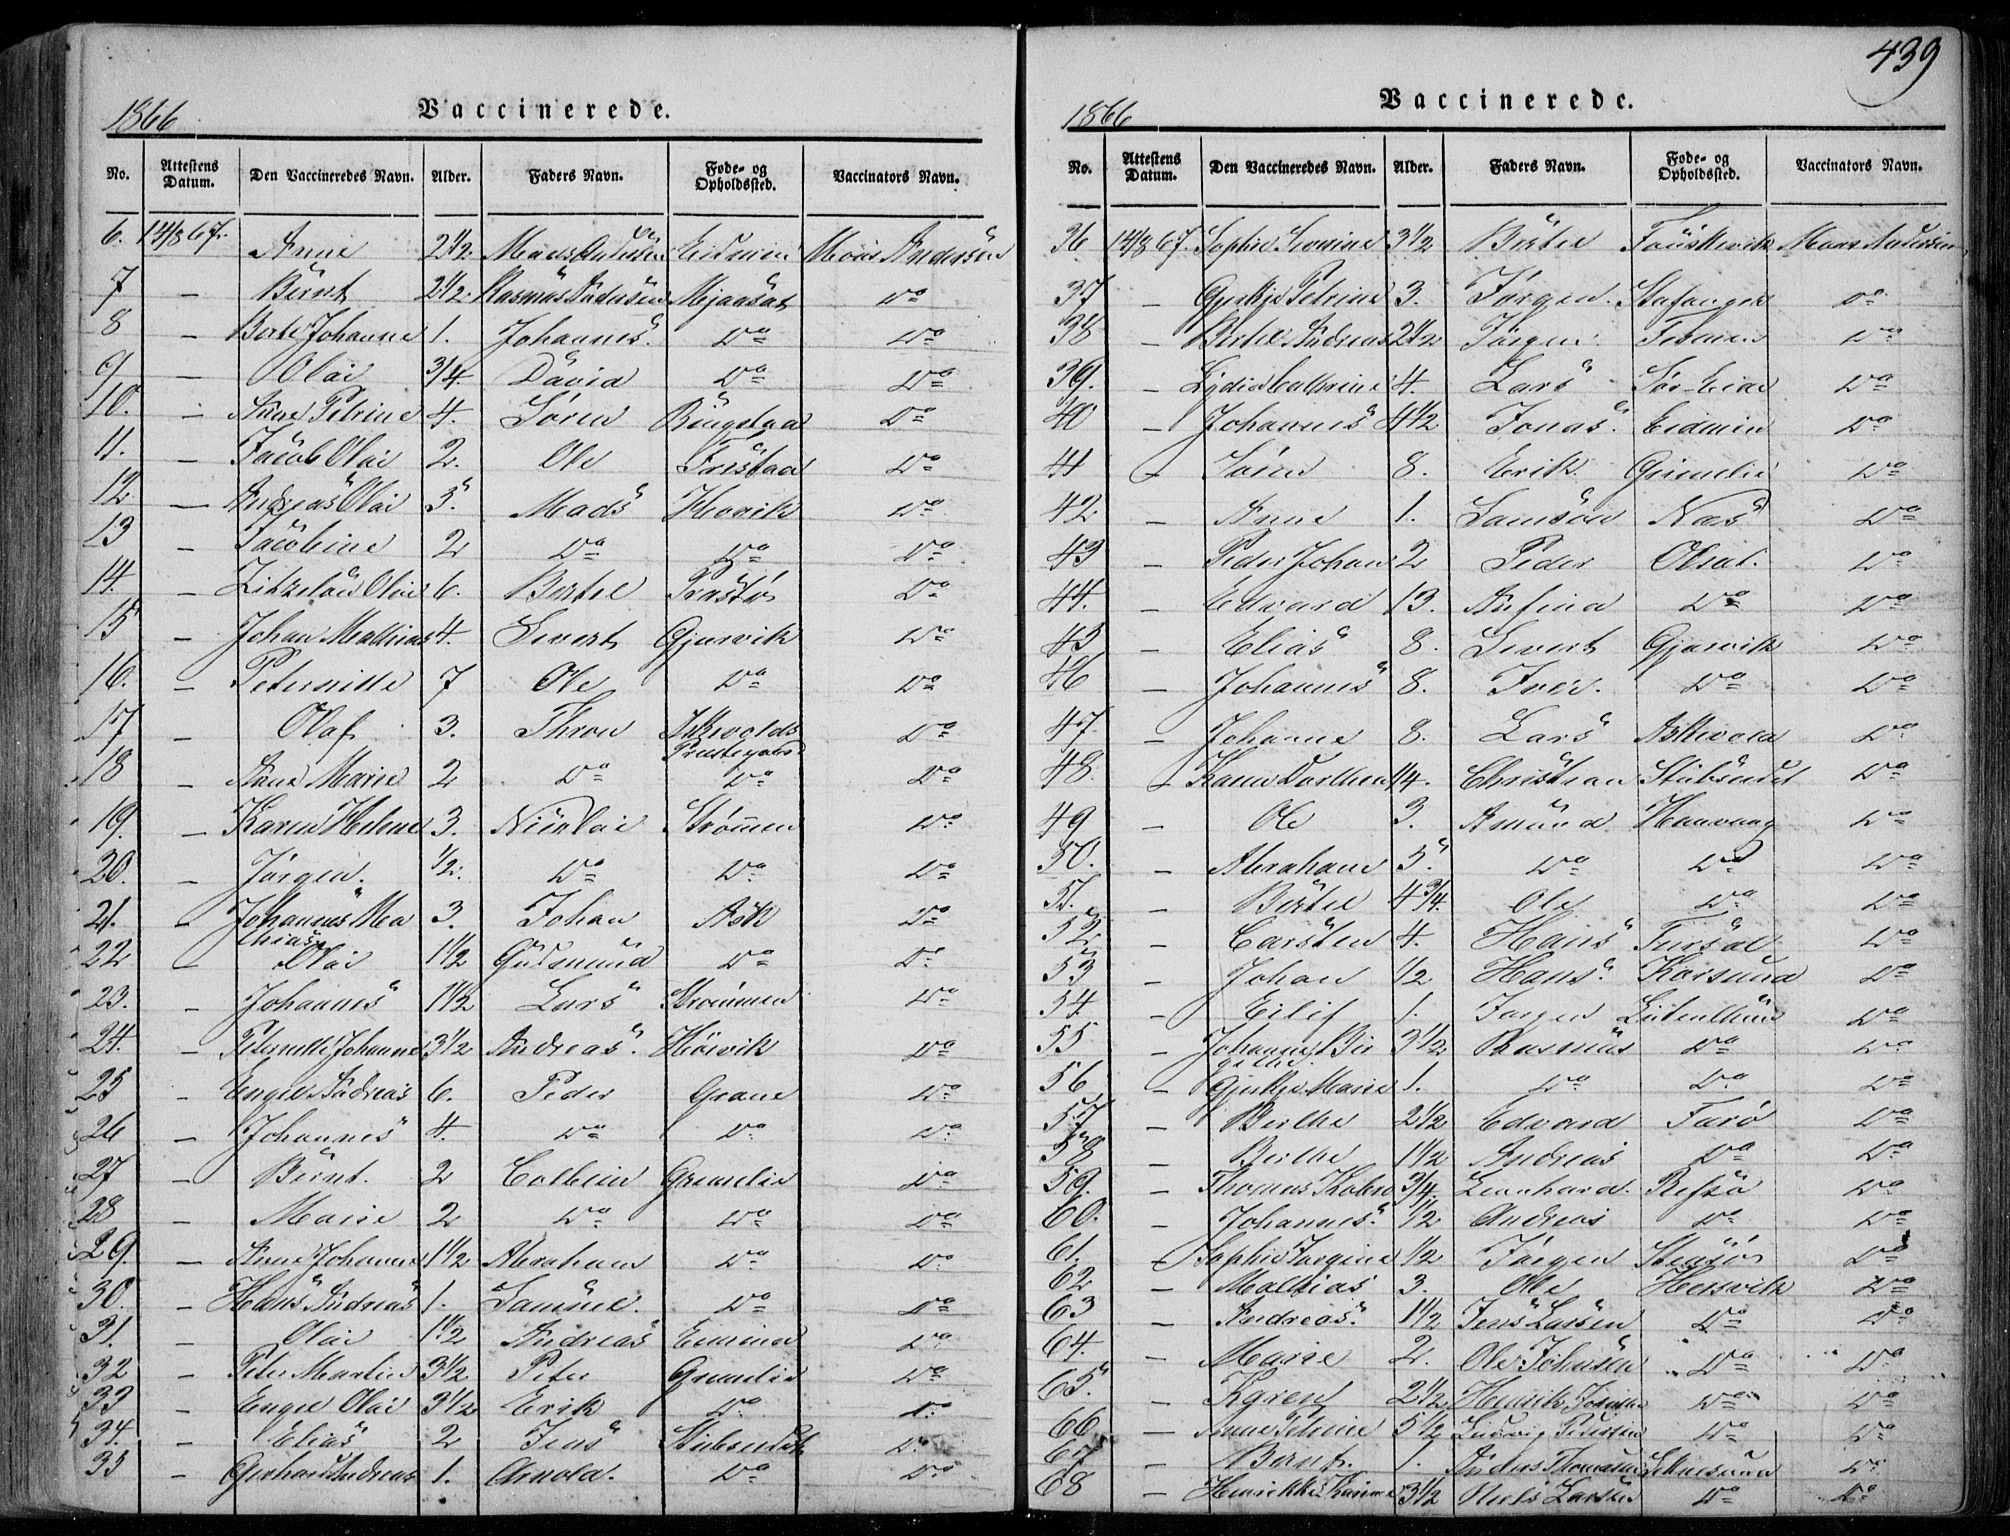 439
1866 Vaccinerede.
No. Attestens Datum. Den Vaccineredes Navn. Alder. Faders Navn. Føde- og Opholdssted. Vaccinators Navn.
6. 14/8 67. Anne 2 1/2 Mads Andersen Eidmin Mons Andersen
7 — Bernt 2 1/2 Rasmus Andersen Mjaaset Do
8 — Berte Johanne 1. Johannes Do Do
9 — Olai 3/4 David Do Do
10. — Anne Petrine 4. Søren Ringstad Do
11. Jacob Olai 2. Ole Do
12 — Andreas Olai 5. Mads Høvik Do
13 — Jacobine 2 Do Do Do
14. — Olai 6. Bertel Præstø Do
15 — Johan Mathias 4. Sivert Gjervik Do
16. — Peternille 7 Ole Do Do
17 — Olaf 3. Thron Askevolds Præstegaard Do
18 — Anne Marie 2 Do Do Do
19. — Karen Helene 3. Nicolai Strømmen Do
20. — Jørgen. 1/2. Do Do Do
21. — Johannes Mathias 3. Johan Ask Do
22 — Olai 1 1/2 Gudmund Do Do
23. — Johannes 1 1/2 Lars Strømmen Do
24. — Peternille Johanne 3 1/2 Andreas. Høivik Do
25 — Engel Andreas 6. Peder Grane Do
26 — Johannes 4. Do Do Do
27 — Bernt. 2 Colbein Grimelie Do
28 — Marie 2 Do Do Do
29. — Anne Johanne 1 1/2 Abraham Do Do
30. — Hans Andreas 1. Samuel. Do Do
31. — Olai 1 1/2 Andreas Do
32 — Peter Martin 3 1/2 Peter Grimelie Do
33 — Engel Olai 3 1/2 Erik Do Do
34. — Elias 2 Jens Stubseidet Do
35 — Gerhard Andreas 1. Arnold. Do Do
1866 Vaccinerede.
No. Attestens Datum. Den Vaccineredes Navn. Alder. Faders Navn. Føde- og Opholdssted. Vaccinators Navn.
36 14/8 67. Sophie Severine 3 1/2 Bertel Fauskevik Mons Andersen
37 — Gjertje Petrine 3. Jørgen. Do
38 — Bertel Andreas 2 1/2 Jørgen Do
39. — Lydia Cathrine 4. Lars Sør Eide Do
40 — Johannes 4 1/2 Jonas. Eidmin Do
41 — Søren 8. Erik Grimelie Do
42 — Anne 1. Samson Næs Do
43 — Peder Johan 2 Peder Olset. Do
44. — Edvard 13. Anfind Do Do
45 — Elias 8. Sivert Gjervik Do
46 — Johannes 8. Iver. Do Do
47. — Johanne 8. Lars Askevold Do
48. — Karen Dorthea 14. Christian Stubseidet Do
49 — Ole 3. Amund Haavaag Do
50. — Abraham 5. Do Do Do
51. — Bertel 4 3/4. Ole Do Do
52 — Carsten 4. Hans Do
53 — Johan 1/2 Hans. Korssund Do
54. — Eilif 1. Jørgen Do
55 — 3 1/2 Rasmus Do Do
56 — Gjertje Marie 1. Do Do Do
57 — Berthe 2 1/2 Edvard Farø Do
58 — Berthe 1 1/2 Andreas Do Do
59. — Thomas 3/4 Leonhard. Refsø Do
60. — Johannes. 1/2 Andreas Do Do
61. — Sophie Jørgine 1/2 Jørgen Stensø Do
62 — Mathias 3. Ole Hersvik Do
63 — Andreas. 1 1/2 Jens Larsen Do Do
64. — Marie 2. Ole Johnsen Do Do
65 — Karen 2 1/2 Henrik Do Do
66 — Anne Petrine 5 1/2 Ludvig Pedersen Do Do
67 — Bernt. 1. Anders Thomasen Do
68 — Henrikke Karine 3 1/2 Niels Larsen Do Do